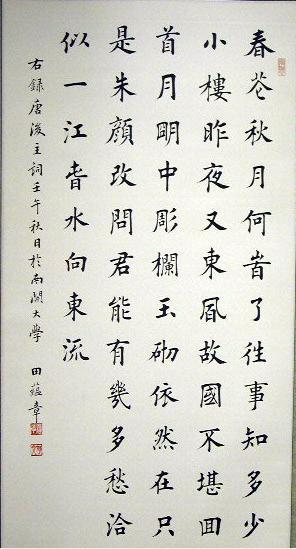 春花秋月何旹了往事知多少
小樓昨夜又東風故國不堪回
首月明中彫欄玉砌依然在只
是朱顏改問君能有幾多愁洽
似一江旾水向東流
右録唐後主詞壬午秋日於南開大學 田蘊章